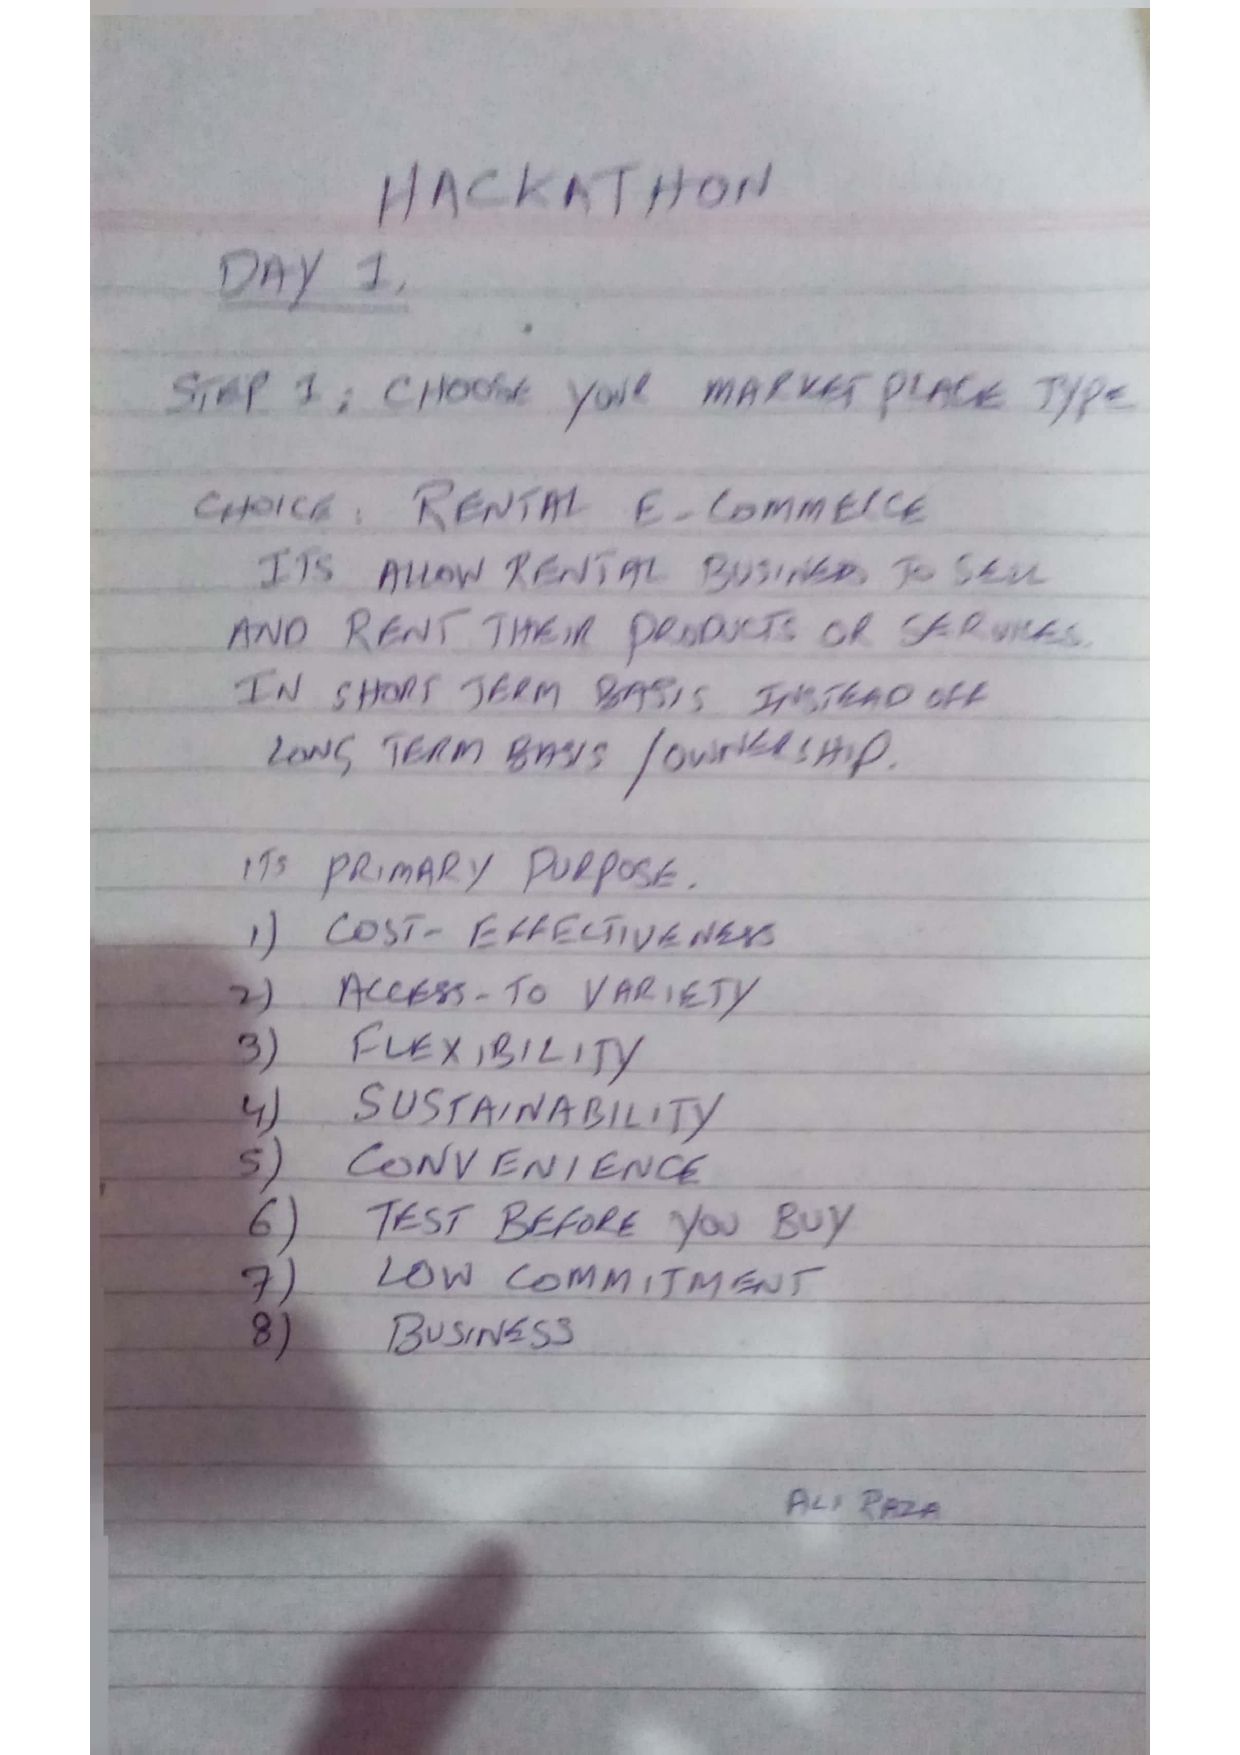 HACKATHON
DAY 1.
STEP 1; CHOOSE YOUR MARKET PLACE TYPE
CHOICE: RENTAL E-COMMERCE
ITS ALLOW RENTAL BUSINESS TO SELL
AND RENT THEIR PRODUCTS OR SERVICES.
IN SHORT TERM BASIS INSTEAD OFF
LONG TERM BASIS /OWNERSHIP.
ITS PRIMARY PURPOSE.
1) COST-EFFECTIVENESS
2) ACCESS-TO VARIETY
3) FLEXIBILITY
4) SUSTAINABILITY
5) CONVENIENCE
6) TEST BEFORE YOU BUY
7) LOW COMMITMENT
8) BUSINESS
ALI RAZA